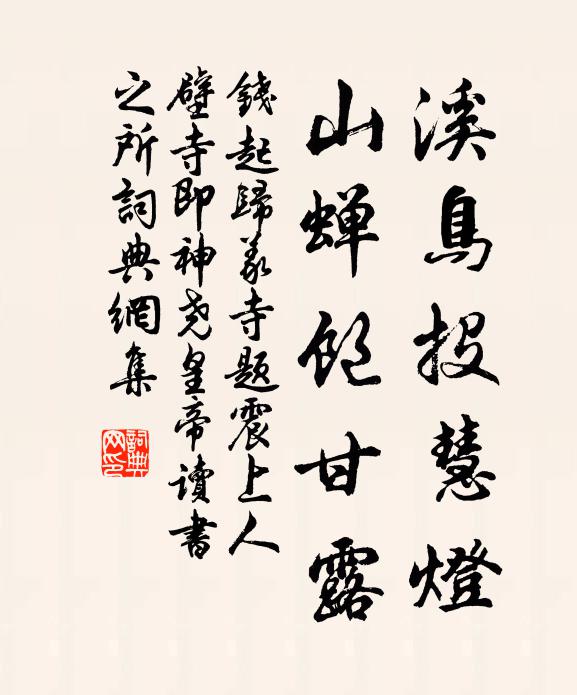 溪鳥投慧燈
山蟬飽甘露
錢起歸義寺題震上人
壁寺即神堯皇帝讀書
之所詞典網集
詞典網印